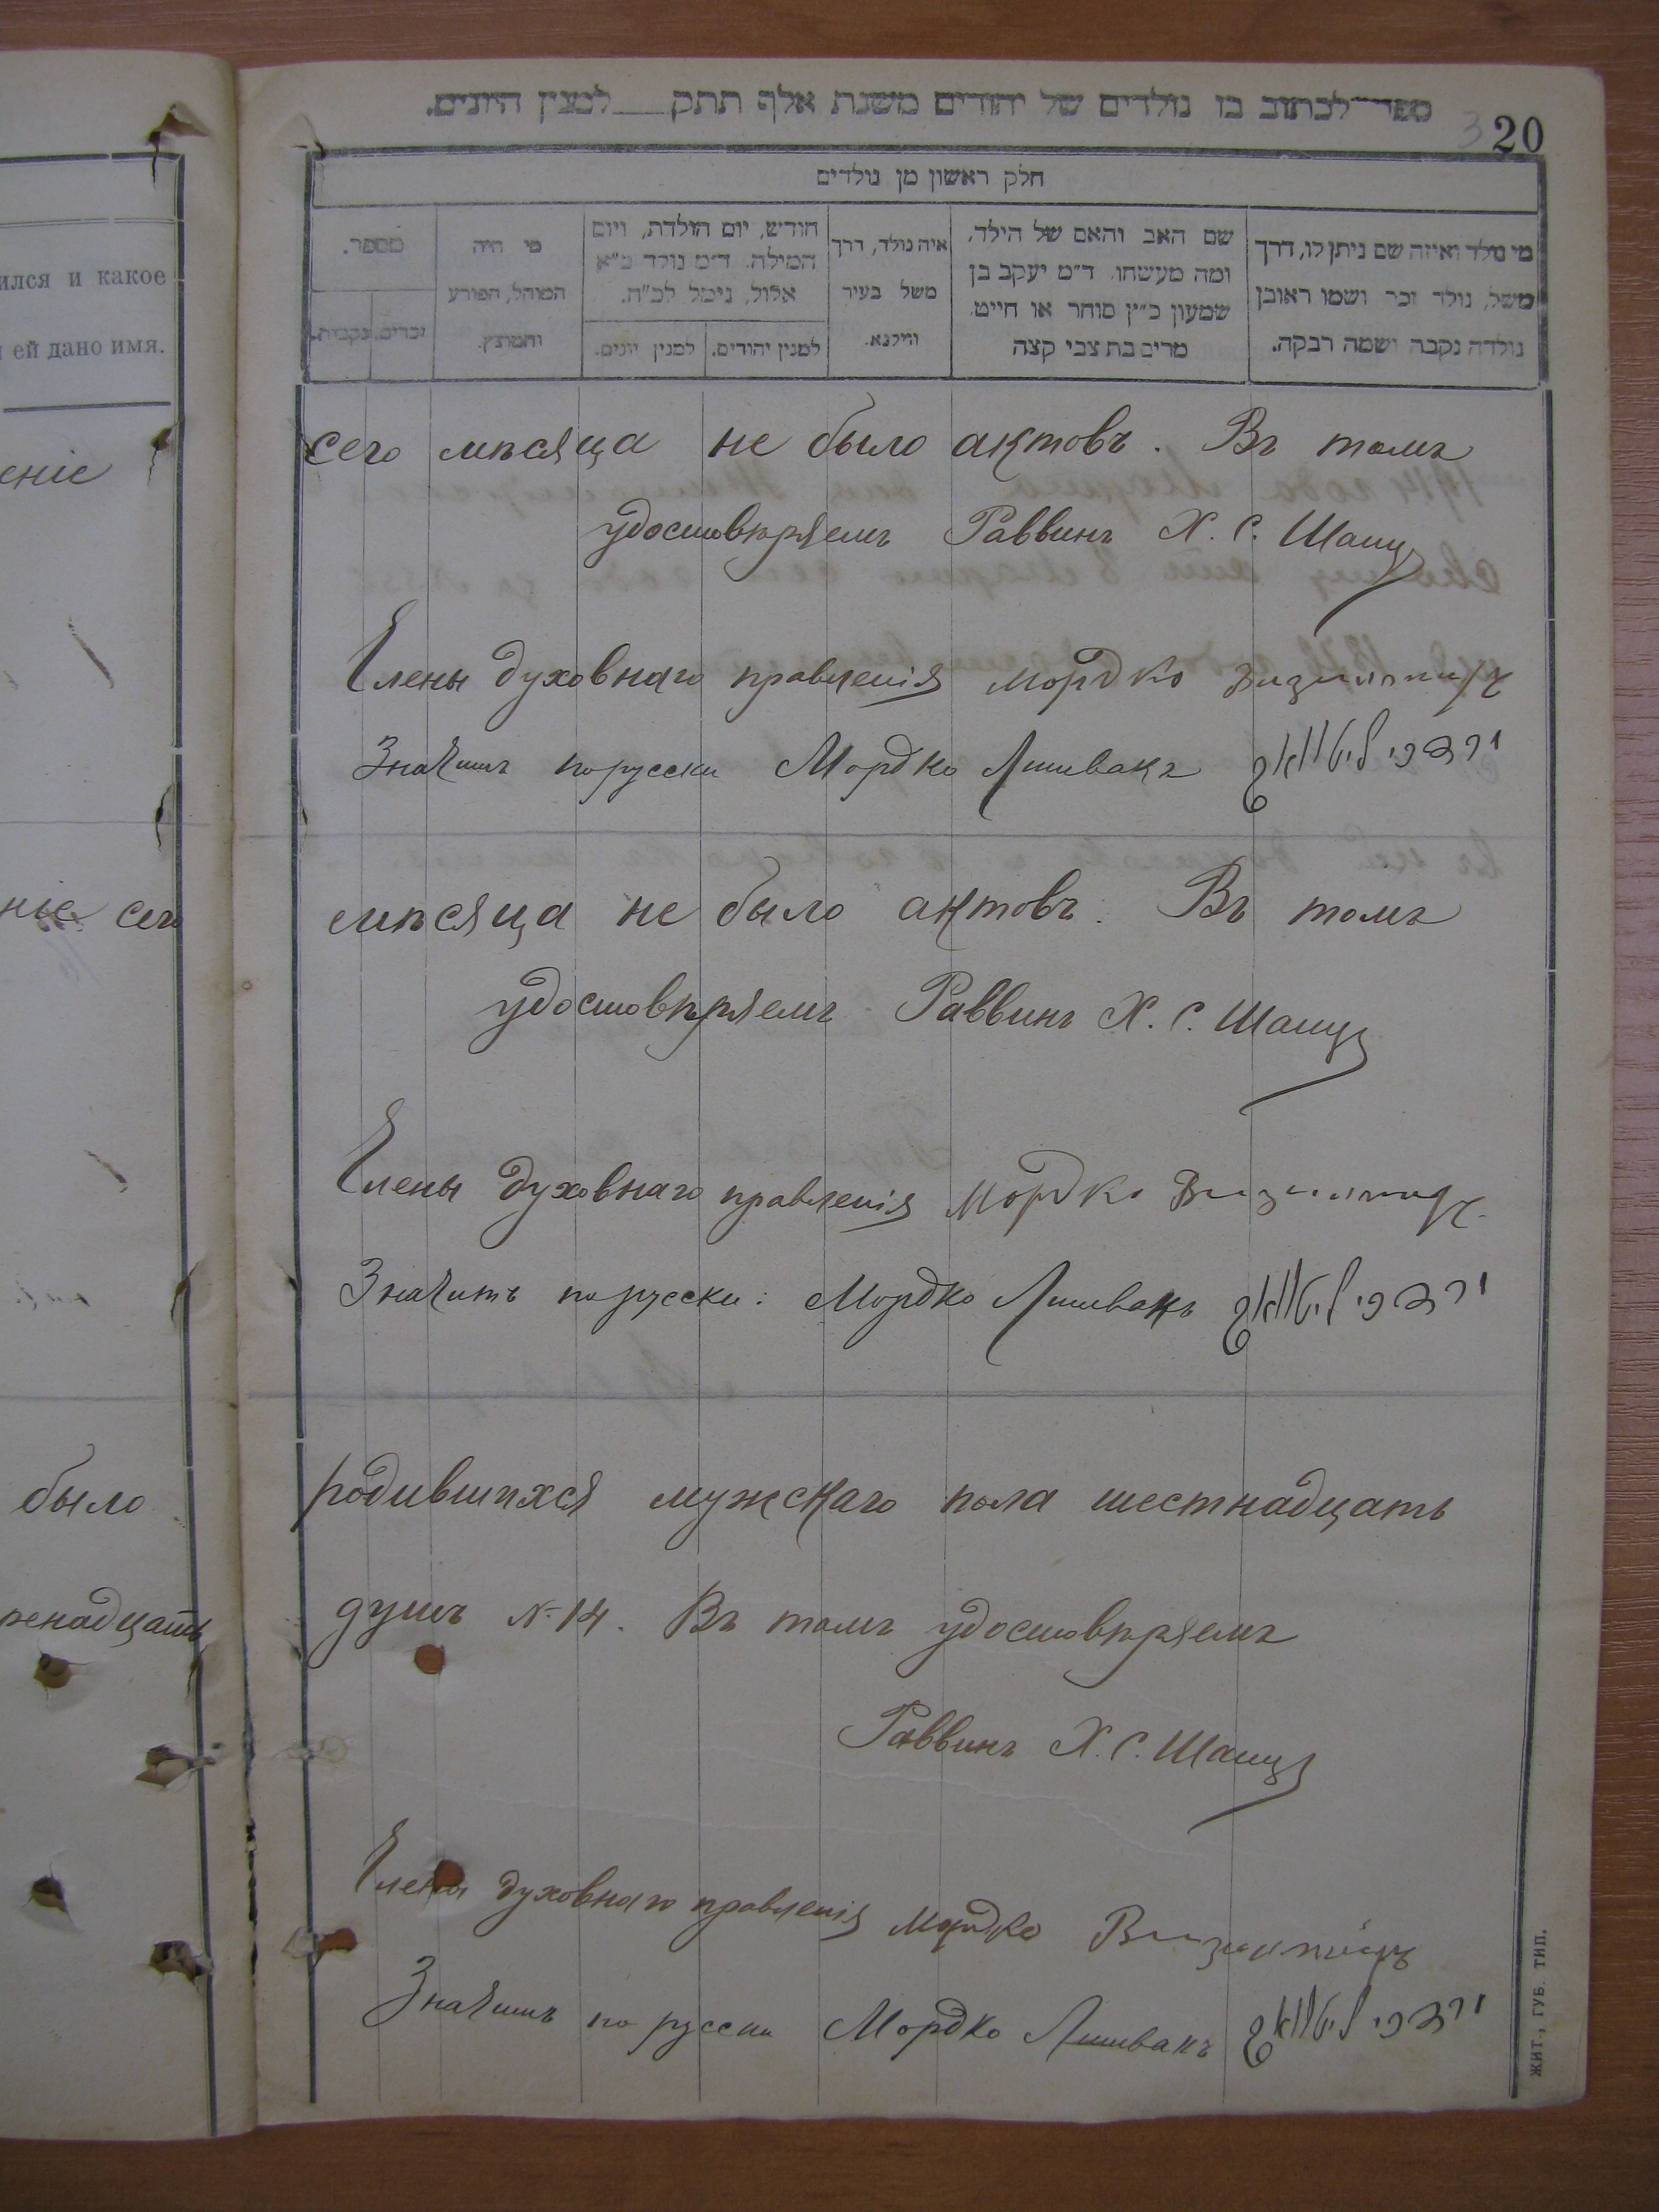 ספר לכתוב בו נולדים של יהודים משנת אלף תתק___למנין היונים.
20
חלק ראשון מן נולדים
מי נולד ואיזה שם ניתן לו, דרך
משל, נולד זכר ושמו ראובן
נולדה נקבה ושמה רבקה.
שם האב והאם של הילד,
ומה מעשהו. ד״מ יעקב בן
שמעון כ״ץ סוחר או חייט
מרים בת צבי קצה
איה נולד, דרך
משל בעיר
ווילנא.
חודש, יום הולדת, ויום
המילה. ד״מ נולד כ״א
אלול, נימל לכ״ח.
למנין יהודים.
למנין יונים.
מי היה
המוהל, הפורע
והמוצץ.
מספר.
זכרים.
נקבות.
сего мѣсяца не было актовъ. Въ томъ
удостовѣряемъ Раввинъ Х. С. Шацъ
Члены духовнаго правленія Мордко
Значитъ по русски Мордко Литвакъ
מרדכי ליטוואק
мѣсяца не было актовъ. Въ томъ
удостовѣряемъ Раввинъ Х. С. Шацъ
Члены духовнаго правленія Мордко
Значитъ по русски: Мордко Литвакъ
מרדכי ליטוואק
родившихся мужскаго пола шестнадцать
душъ № 14. Въ томъ удостовѣряемъ
Раввинъ Х. С. Шацъ
Члены духовнаго правленія Мордко
Значитъ по русски Мордко Литвакъ
מרדכי ליטוואק
ЖИТ., ГУБ. ТИП.
ился и какое
ей дано имя.
еніе
ніе сего
было
надцать